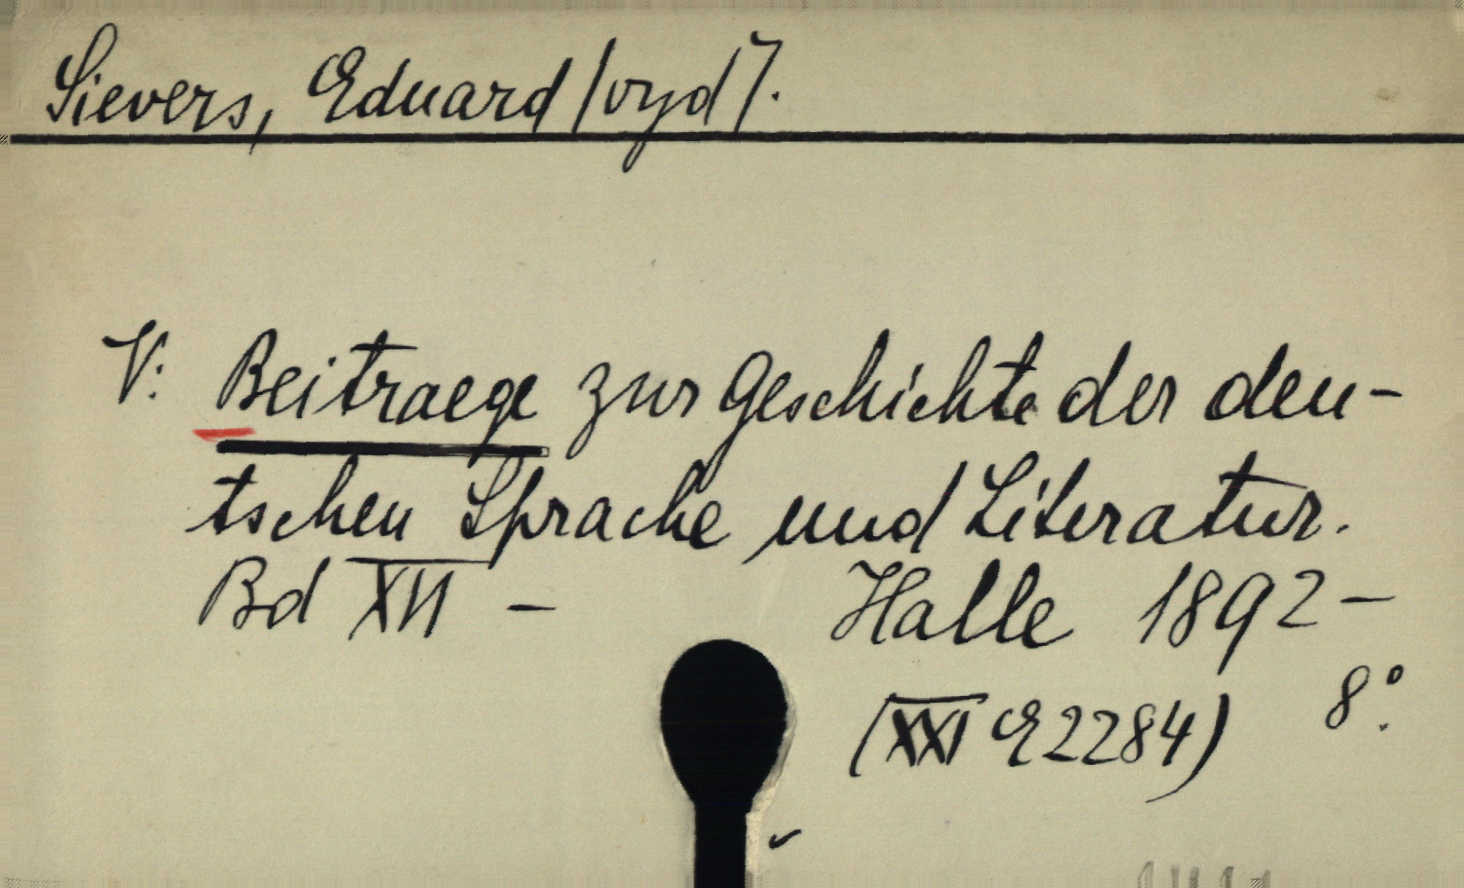 Sievers, Eduard /vyd/.
V: Beitraege zur Geschichte der deu-
tschen Sprache und Literatur.
Bd XVI – Halle 1892–
8°.
(XXI E 2284)